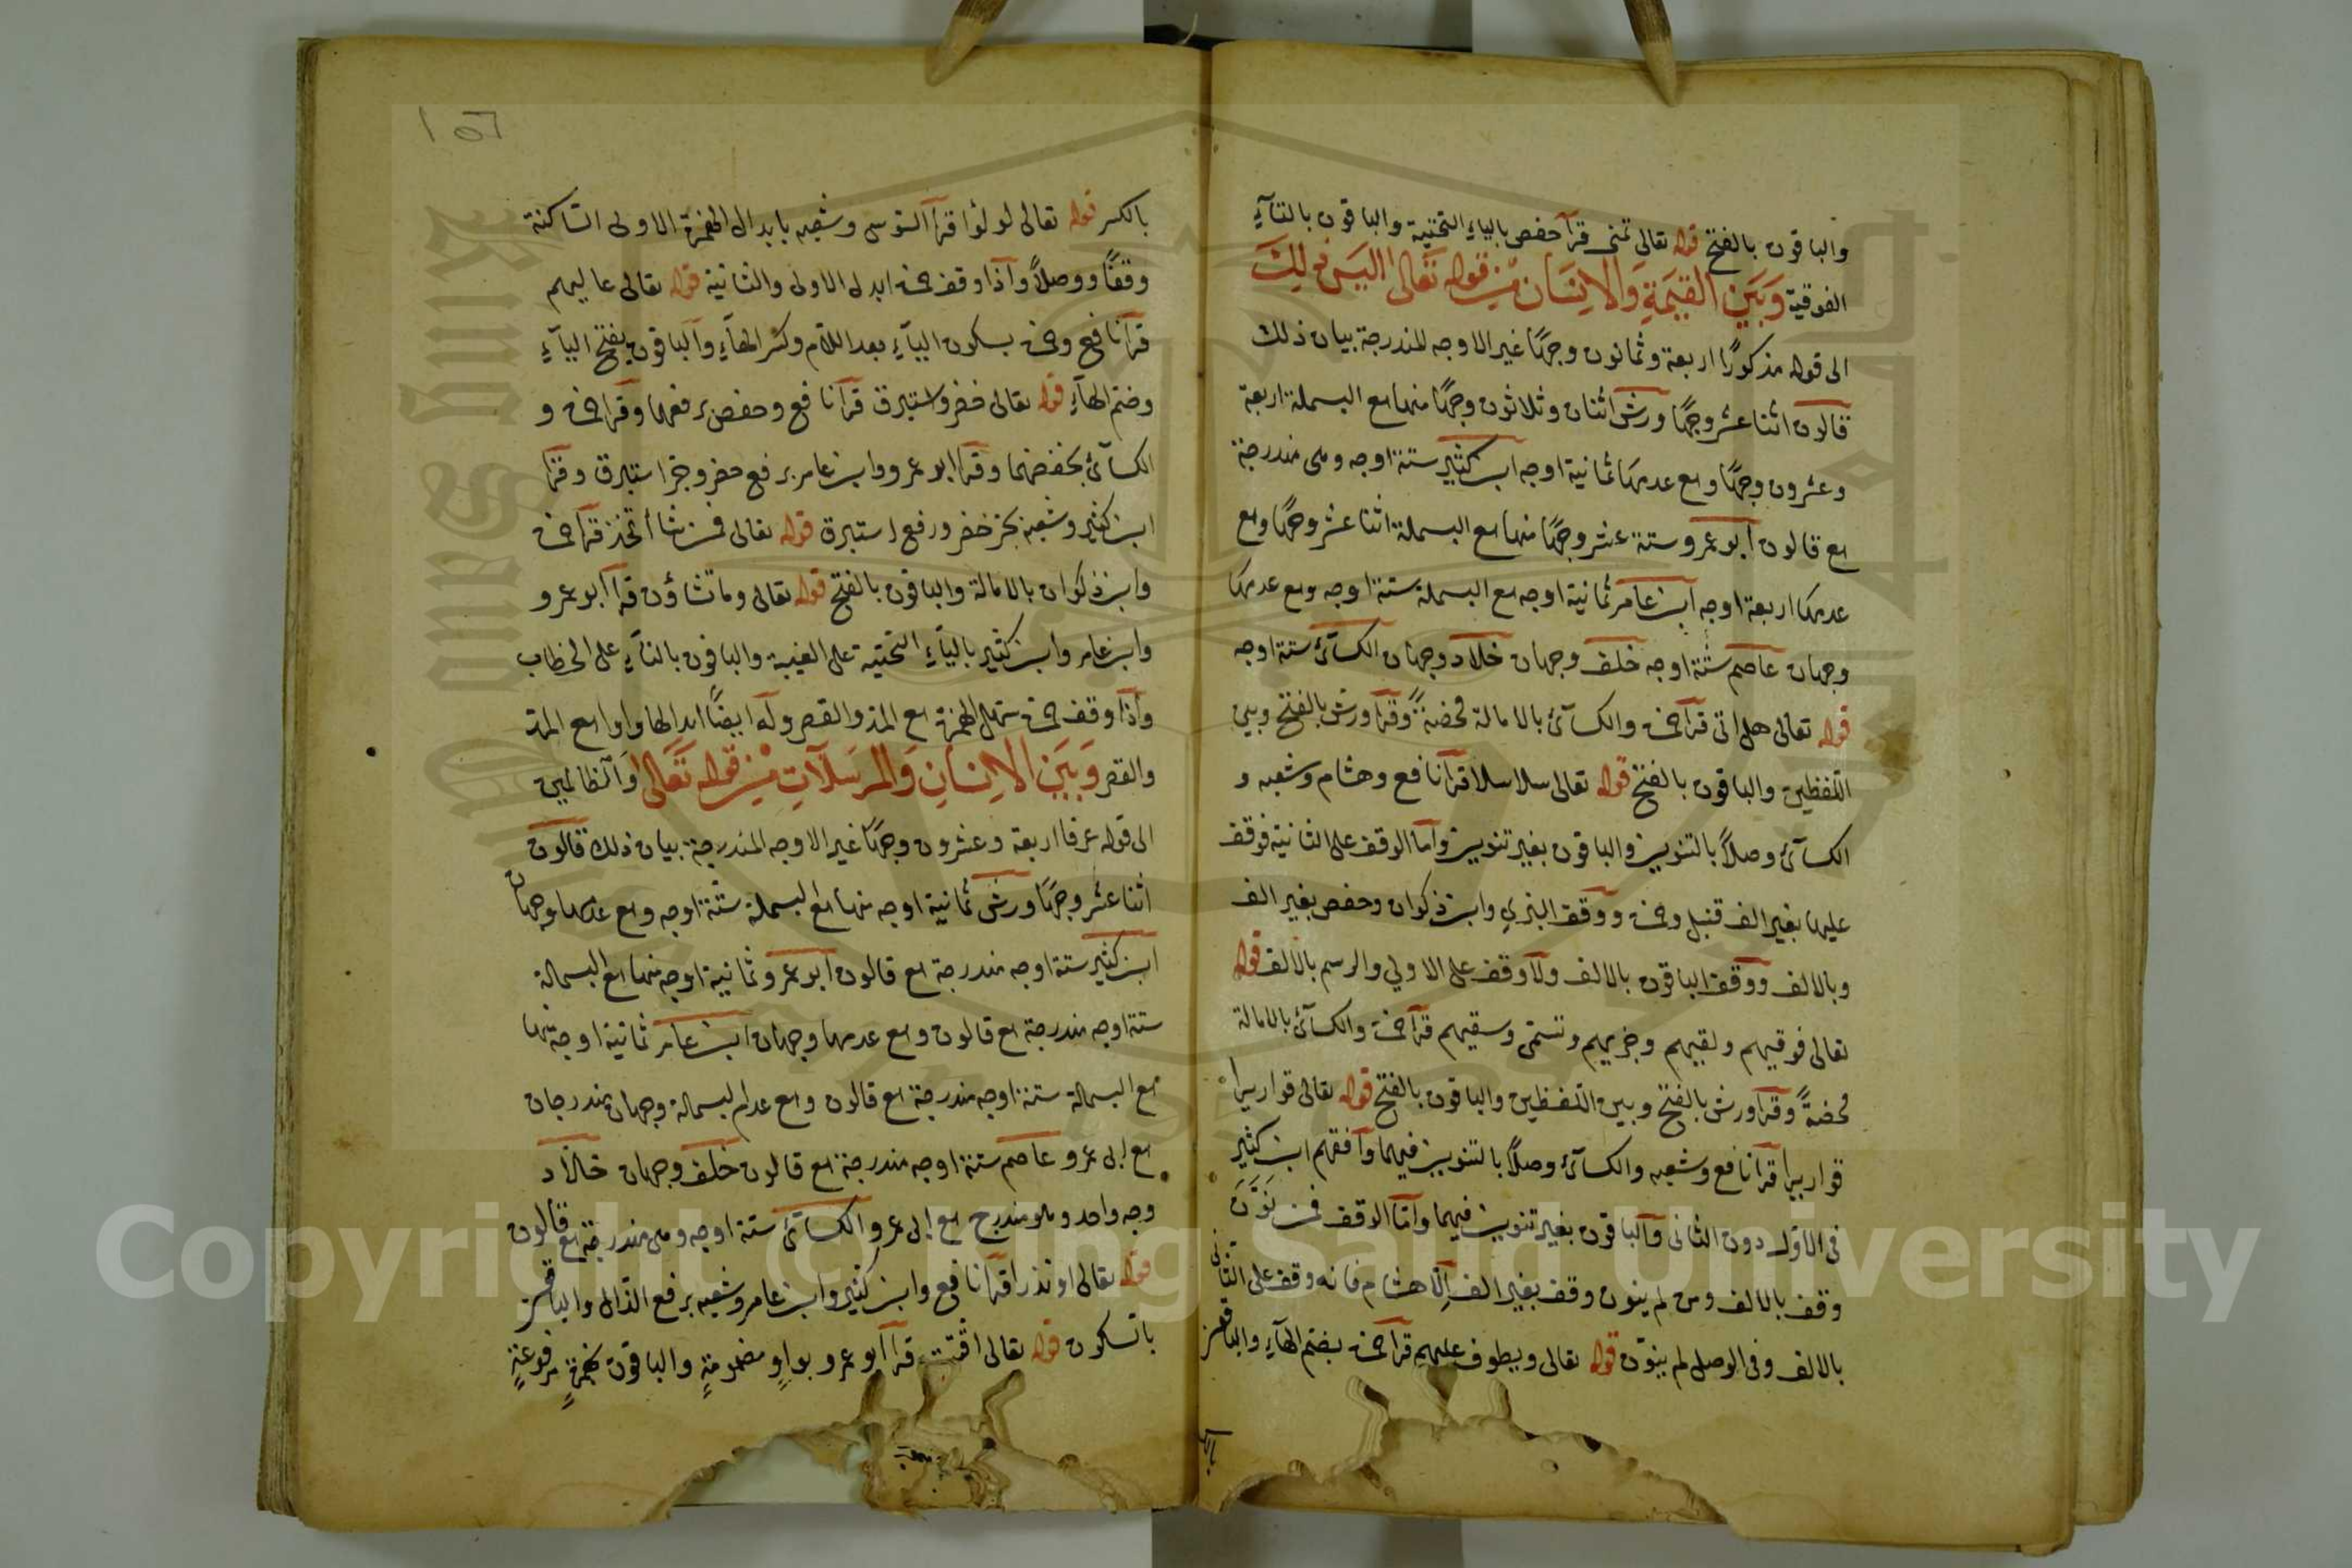 والباقون بالفتح قوله تعالى تمنى قرآ حفص بالياء التحتية والباقون بالتآءِ
الفوقية وَبَيَن القيمَةِ وَالاِنسَان مِن قوله تَعَالى اليَس ذلِكَ
الى قوله مذكورًا اربعة وثمانون وجهًا غير الاوجه المندرجة بيان ذلك
قالون اثنا عشر وجهًا ورش اثنان وثلاثون وجهًا منها مع البسملة اربعة
وعشرون وجهًا ومع عدمها ثمانية اوجه ابن كثير ستة اوجه وهى مندرجة
مع قالون أبو عمرو ستة عشر وجهًا منها مع البسملة اثنا عشر وجهًا ومع
عدمها اربعة اوجه ابن عامر ثمانية اوجه مع البسملة ستة اوجه ومع عدمها
وجهان عاصم ستة اوجه خلف وجهان خلاد وجهان الكسآئى ستة اوجه
قوله تعالى هل اتى قرآ حمزة والكسآئى بالامالة محضة وقرآ ورش بالفتح وبين
اللفظين والباقون بالفتح قوله تعالى سلاسلا قرآ نافع وهشام وشعبه و
الكسآئى وصلاً بالتنوين والباقون بغير تنوين وآما الوقف على الثانية فوقف
عليها بغير الف قنبل وحمزة ووقف البزي وابن ذكوان وحفص بغير الف
وبالالف ووقف الباقون بالالف ولآ وقف على الاولي والرسم بالالف قوله
تعالى فوقيهم ولقيهم وجزيهم وتسمى وسقيهم قرآ حمزة والكسآئى بالامالة
محضةً وقرآ ورش بالفتح وبين اللفظين والباقون بالفتح قوله تعالى قواريرا
قواريرا قرآ نافع وشعبه والكسآئى وصلاً بالتنوين فيهما وآفقهم ابن كثير
فى الاول دون الثانى وآلباقون بغير تنوين فيهما وآمّا الوقف فمن نَوَّنَ
وقف بالالف ومن لم ينون وقف بغير الف اِلّا هشام فانه وقف على الثانى
بالالف وفى الوصل لم ينوّن قوله تعالى ويطوف عليهم قرآ حمزة بضم الهآءِ والباقون
بالكسر
١٥٦
بالكسر قوله تعالى لولوًا قرآ السّوسى وشعبه بابدال الهمزة الاولى السّاكنة
وقفًا ووصلاً وآذا وقف حمزة ابدل الاولى والثانية قوله تعالى عاليهم
قرآ نافع وحمزة بسكون اليآءِ بعد اللام وكسر الهآءِ وآلباقون بفتح اليآءِ
وضم الهآءِ قوله تعالى خضر واستبرق قرآ نافع وحفص برفعهما وقرآ حمزة و
الكسآئى بخفضهما وقرآ ابو عمرو وابن عامر برفع خضر وجر استبرق وقرآ
ابن كثير وشعبة بجر خضر ورفع استبرق قوله تعالى فمن شا اتخذ قرآ حمزة
وابن ذكوان بالامالة والباقون بالفتح قوله تعالى وما تشاؤن قرآ آبو عمرو
وابن عامر وابن كثير باليآءِ التحتية على الغيبة والباقون بالتآءِ على الخطاب
وآذا وقف حمزة سهل الهمزة مع المد والقصر وله ايضًا ابدالها واوا مع المد
والقصر وَبَيَن الاِنسَانِ وَالمرسَلآتِ مِن قوله تَعَالى وَآلظالمين
الى قوله عرفا اربعة وعشرون وجهًا غير الاوجه المندرجة بيان ذلك قالون
اثنا عشر وجهًا ورش ثمانية اوجه منها مع البسملة ستة اوجه ومع عدمها وجهان
ابن كثير ستة اوجه مندرجة مع قالون ابو عمرو ثمانية اوجه منها مع البسملة
ستة اوجه مندرجة مع قالون ومع عدمها وجهان ابن عامر ثمانية اوجه منها
مع البسملة ستة اوجه مندرجة مع قالون ومع عدم البسملة وجهان مندرجان
مع ابى عمرو عاصم ستة اوجه مندرجة مع قالون خلف وجهان خلاد
وجه واحد وهو مندرج مع ابى عمرو الكسآئى ستة اوجه وهى مندرجة مع قالون
قوله تعالى او نذرا قرآ نافع وابن كثير وابن عامر وشعبه برفع الذال والباقون
بالسكون قوله تعالى اقتت قرآ آبو عمرو بواوٍ مضمومةٍ والباقون بهمزةٍ مرفوعةٍ
Copyright © King Saud University